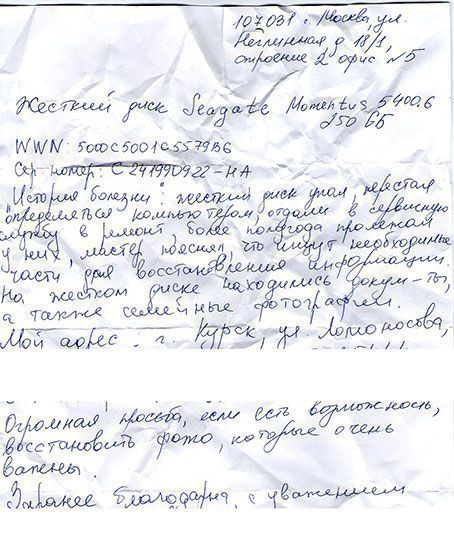 107031 г. Москва, ул.
Неглинная д 18/1,
строение 2 офис №5
Жесткий диск Seagate Momentus 5400.6
250 Gб
WWN: 5000C5001C5579B6
Сер. номер: C 241990922-HA
"История болезни": жесткий диск упал, перестал
определяться компьютером, отдали в сервисную
службу в ремонт, более полугода пролежал
у них, мастер пояснял, что ищут необходимые
части для восстановления информации.
На жестком диске находились докум-ты,
а также семейные фотографии.
Мой адрес - г. Курск, ул. Ломоносова,
Огромная просьба, если есть возможность,
восстановить фото, которые очень
важны.
Заранее благодарна, с уважением